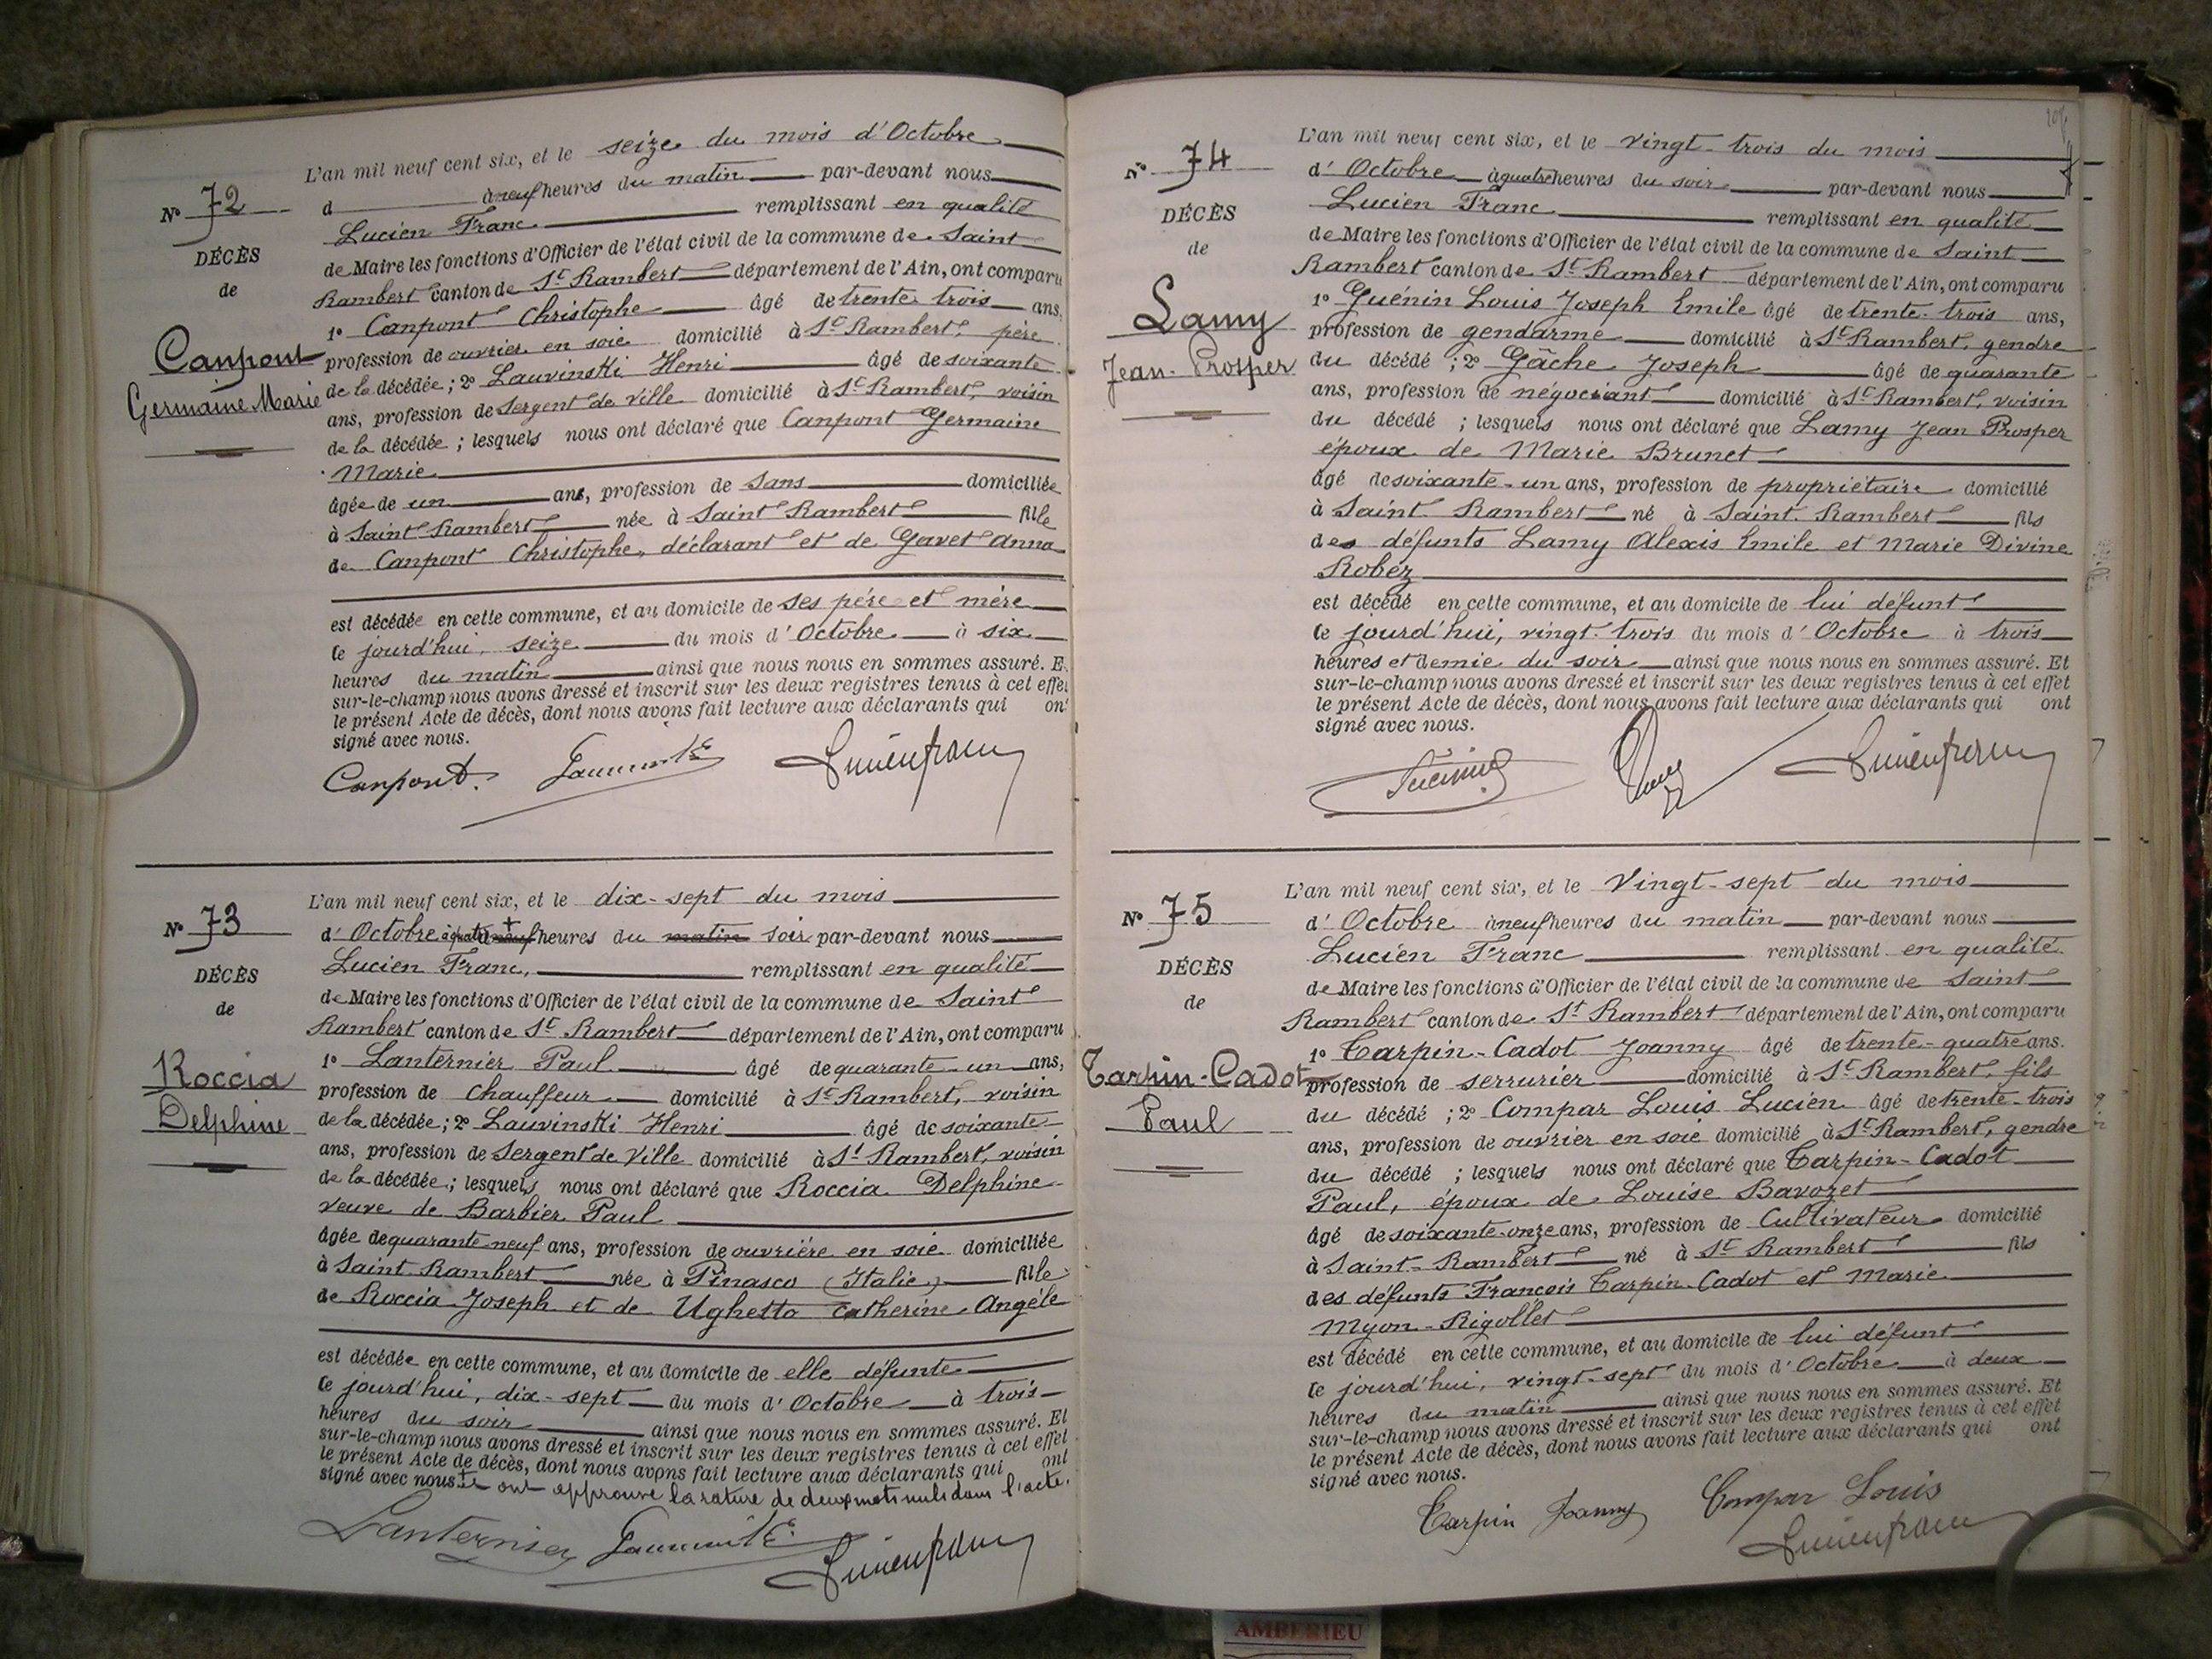 L'an mil neuf cent six, et le seize du mois d'Octobre
d à neuf heures du matin par-devant nous
Nº 72
Lucien Franc remplissant en qualité
DÉCÈS
de Maire les fonctions d'Officier de l'état civil de la commune de Saint
de
Rambert canton de St Rambert département de l'Ain, ont comparu
1º Canpont Christophe âgé de trente trois ans,
Canpont
profession de ouvrier en soie domicilié à St Rambert, père
Germaine Marie
de la décédée ; 2º Lauvinski Henri âgé de soixante
ans, profession de Sergent de Ville domicilié à St Rambert, voisin
de la décédée ; lesquels nous ont déclaré que Canpont Germaine
Marie
âgée de un an, profession de Sans domiciliée
à Saint Rambert née à Saint Rambert fille
de Canpont Christophe, déclarant et de Gavet Anna
est décédée en cette commune, et au domicile de ses père et mère
le jourd'hui, seize du mois d'Octobre à six
heures du matin ainsi que nous nous en sommes assuré. E
sur-le-champ nous avons dressé et inscrit sur les deux registres tenus à cet effet
le présent Acte de décès, dont nous avons fait lecture aux déclarants qui ont
signé avec nous.
Canpont
Lucien franc
L'an mil neuf cent six, et le dix-sept du mois
Nº 73
d'Octobre à quatre neuf heures du matin soir par-devant nous
Lucien Franc, remplissant en qualité
DÉCÈS
de Maire les fonctions d'Officier de l'état civil de la commune de Saint
de
Rambert canton de St Rambert département de l'Ain, ont comparu
1º Lanternier Paul âgé de quarante-un ans,
Roccia
profession de Chauffeur domicilié à St Rambert, voisin
Delphine
de la décédée ; 2º Lauvinski Henri âgé de soixante
ans, profession de Sergent de Ville domicilié à St Rambert, voisin
de la décédée ; lesquels nous ont déclaré que Roccia Delphine
veuve de Barbier Paul
âgée de quarante-neuf ans, profession de ouvrière en soie domiciliée
à Saint-Rambert née à Pinasco (Italie) fille
de Roccia Joseph et de Ughetto Catherine Angéle
est décédée en cette commune, et au domicile de elle défunte
le jourd'hui, dix-sept du mois d'Octobre à trois
heures du soir ainsi que nous nous en sommes assuré. Et
sur-le-champ nous avons dressé et inscrit sur les deux registres tenus à cet effet
le présent Acte de décès, dont nous avons fait lecture aux déclarants qui ont
signé avec nous + et ont approuvé la rature de deux mots nuls dans l'acte.
Lanternier
Lucien franc
L'an mil neuf cent six, et le vingt-trois du mois
Nº 74
d'Octobre à quatre heures du soir par-devant nous
DÉCÈS
Lucien Franc remplissant en qualité
de
de Maire les fonctions d'Officier de l'état civil de la commune de Saint
Rambert canton de St Rambert département de l'Ain, ont comparu
Lamy
1º Guénin Louis Joseph Emile âgé de trente-trois ans,
Jean-Prosper
profession de gendarme domicilié à St Rambert, gendre
du décédé ; 2º Gâche Joseph âgé de quarante
ans, profession de négociant domicilié à St Rambert, voisin
du décédé ; lesquels nous ont déclaré que Lamy Jean Prosper
époux de Marie Brunet
âgé de soixante-un ans, profession de propriétaire domicilié
à Saint Rambert né à Saint Rambert fils
des défunts Lamy Alexis Emile et Marie Divine
Robez
est décédé en cette commune, et au domicile de lui défunt
le jourd'hui, vingt-trois du mois d'Octobre à trois
heures et demie du soir ainsi que nous nous en sommes assuré. Et
sur-le-champ nous avons dressé et inscrit sur les deux registres tenus à cet effet
le présent Acte de décès, dont nous avons fait lecture aux déclarants qui ont
signé avec nous.
Lucien franc
L'an mil neuf cent six, et le Vingt-sept du mois
Nº 75
d'Octobre à neuf heures du matin par-devant nous
Lucien Franc remplissant en qualité
DÉCÈS
de Maire les fonctions d'Officier de l'état civil de la commune de Saint
de
Rambert canton de St Rambert département de l'Ain, ont comparu
1º Tarpin-Cadot Joanny âgé de trente-quatre ans.
Tarpin-Cadot
profession de serrurier domicilié à St Rambert, fils
Paul
du décédé ; 2º Compar Louis Lucien âgé de trente-trois
ans, profession de ouvrier en soie domicilié à St Rambert, gendre
du décédé ; lesquels nous ont déclaré que Tarpin-Cadot
Paul, époux de Louise Bavozet
âgé de soixante-onze ans, profession de Cultivateur domicilié
à Saint-Rambert né à St Rambert fils
des défunts François Tarpin-Cadot et Marie
Myon-Rigollet
est décédé en cette commune, et au domicile de lui défunt
le jourd'hui, vingt-sept du mois d'Octobre à deux
heures du matin ainsi que nous nous en sommes assuré. Et
sur-le-champ nous avons dressé et inscrit sur les deux registres tenus à cet effet
le présent Acte de décès, dont nous avons fait lecture aux déclarants qui ont
signé avec nous.
Tarpin Joanny Compar Louis
Lucien franc
AMBERIEU